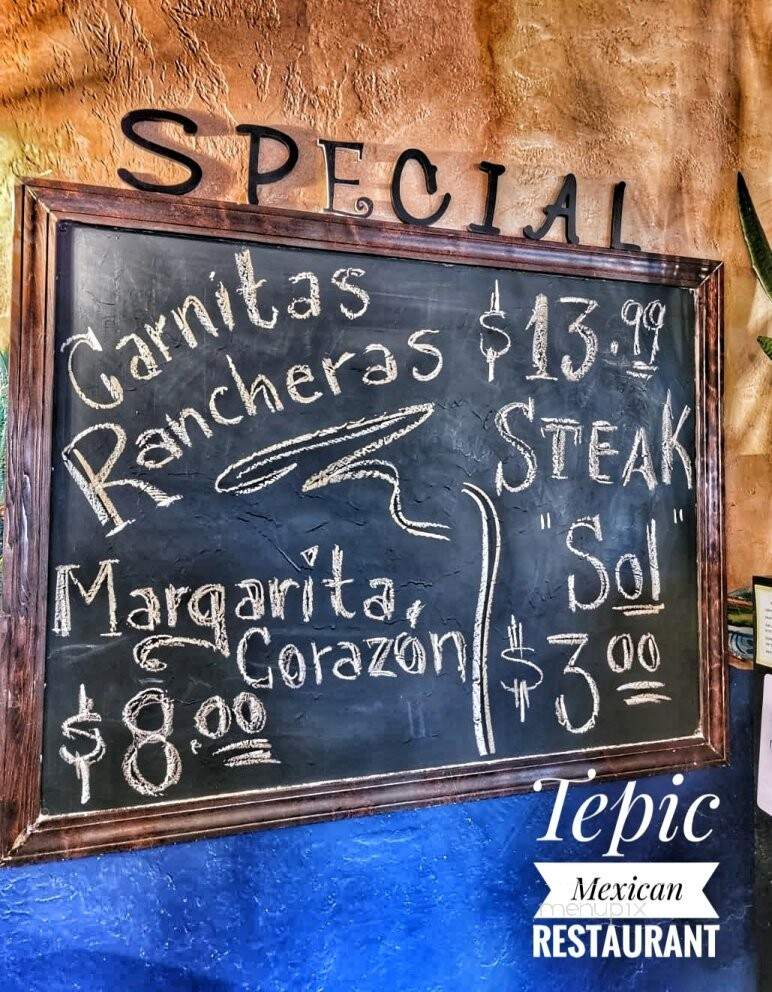 SPECIAL
Carnitas
Rancheras
$13.99
STEAK
"Sol"
$3.00
Margarita,
Corazón
$8.00
Tepic
Mexican
menupix
RESTAURANT